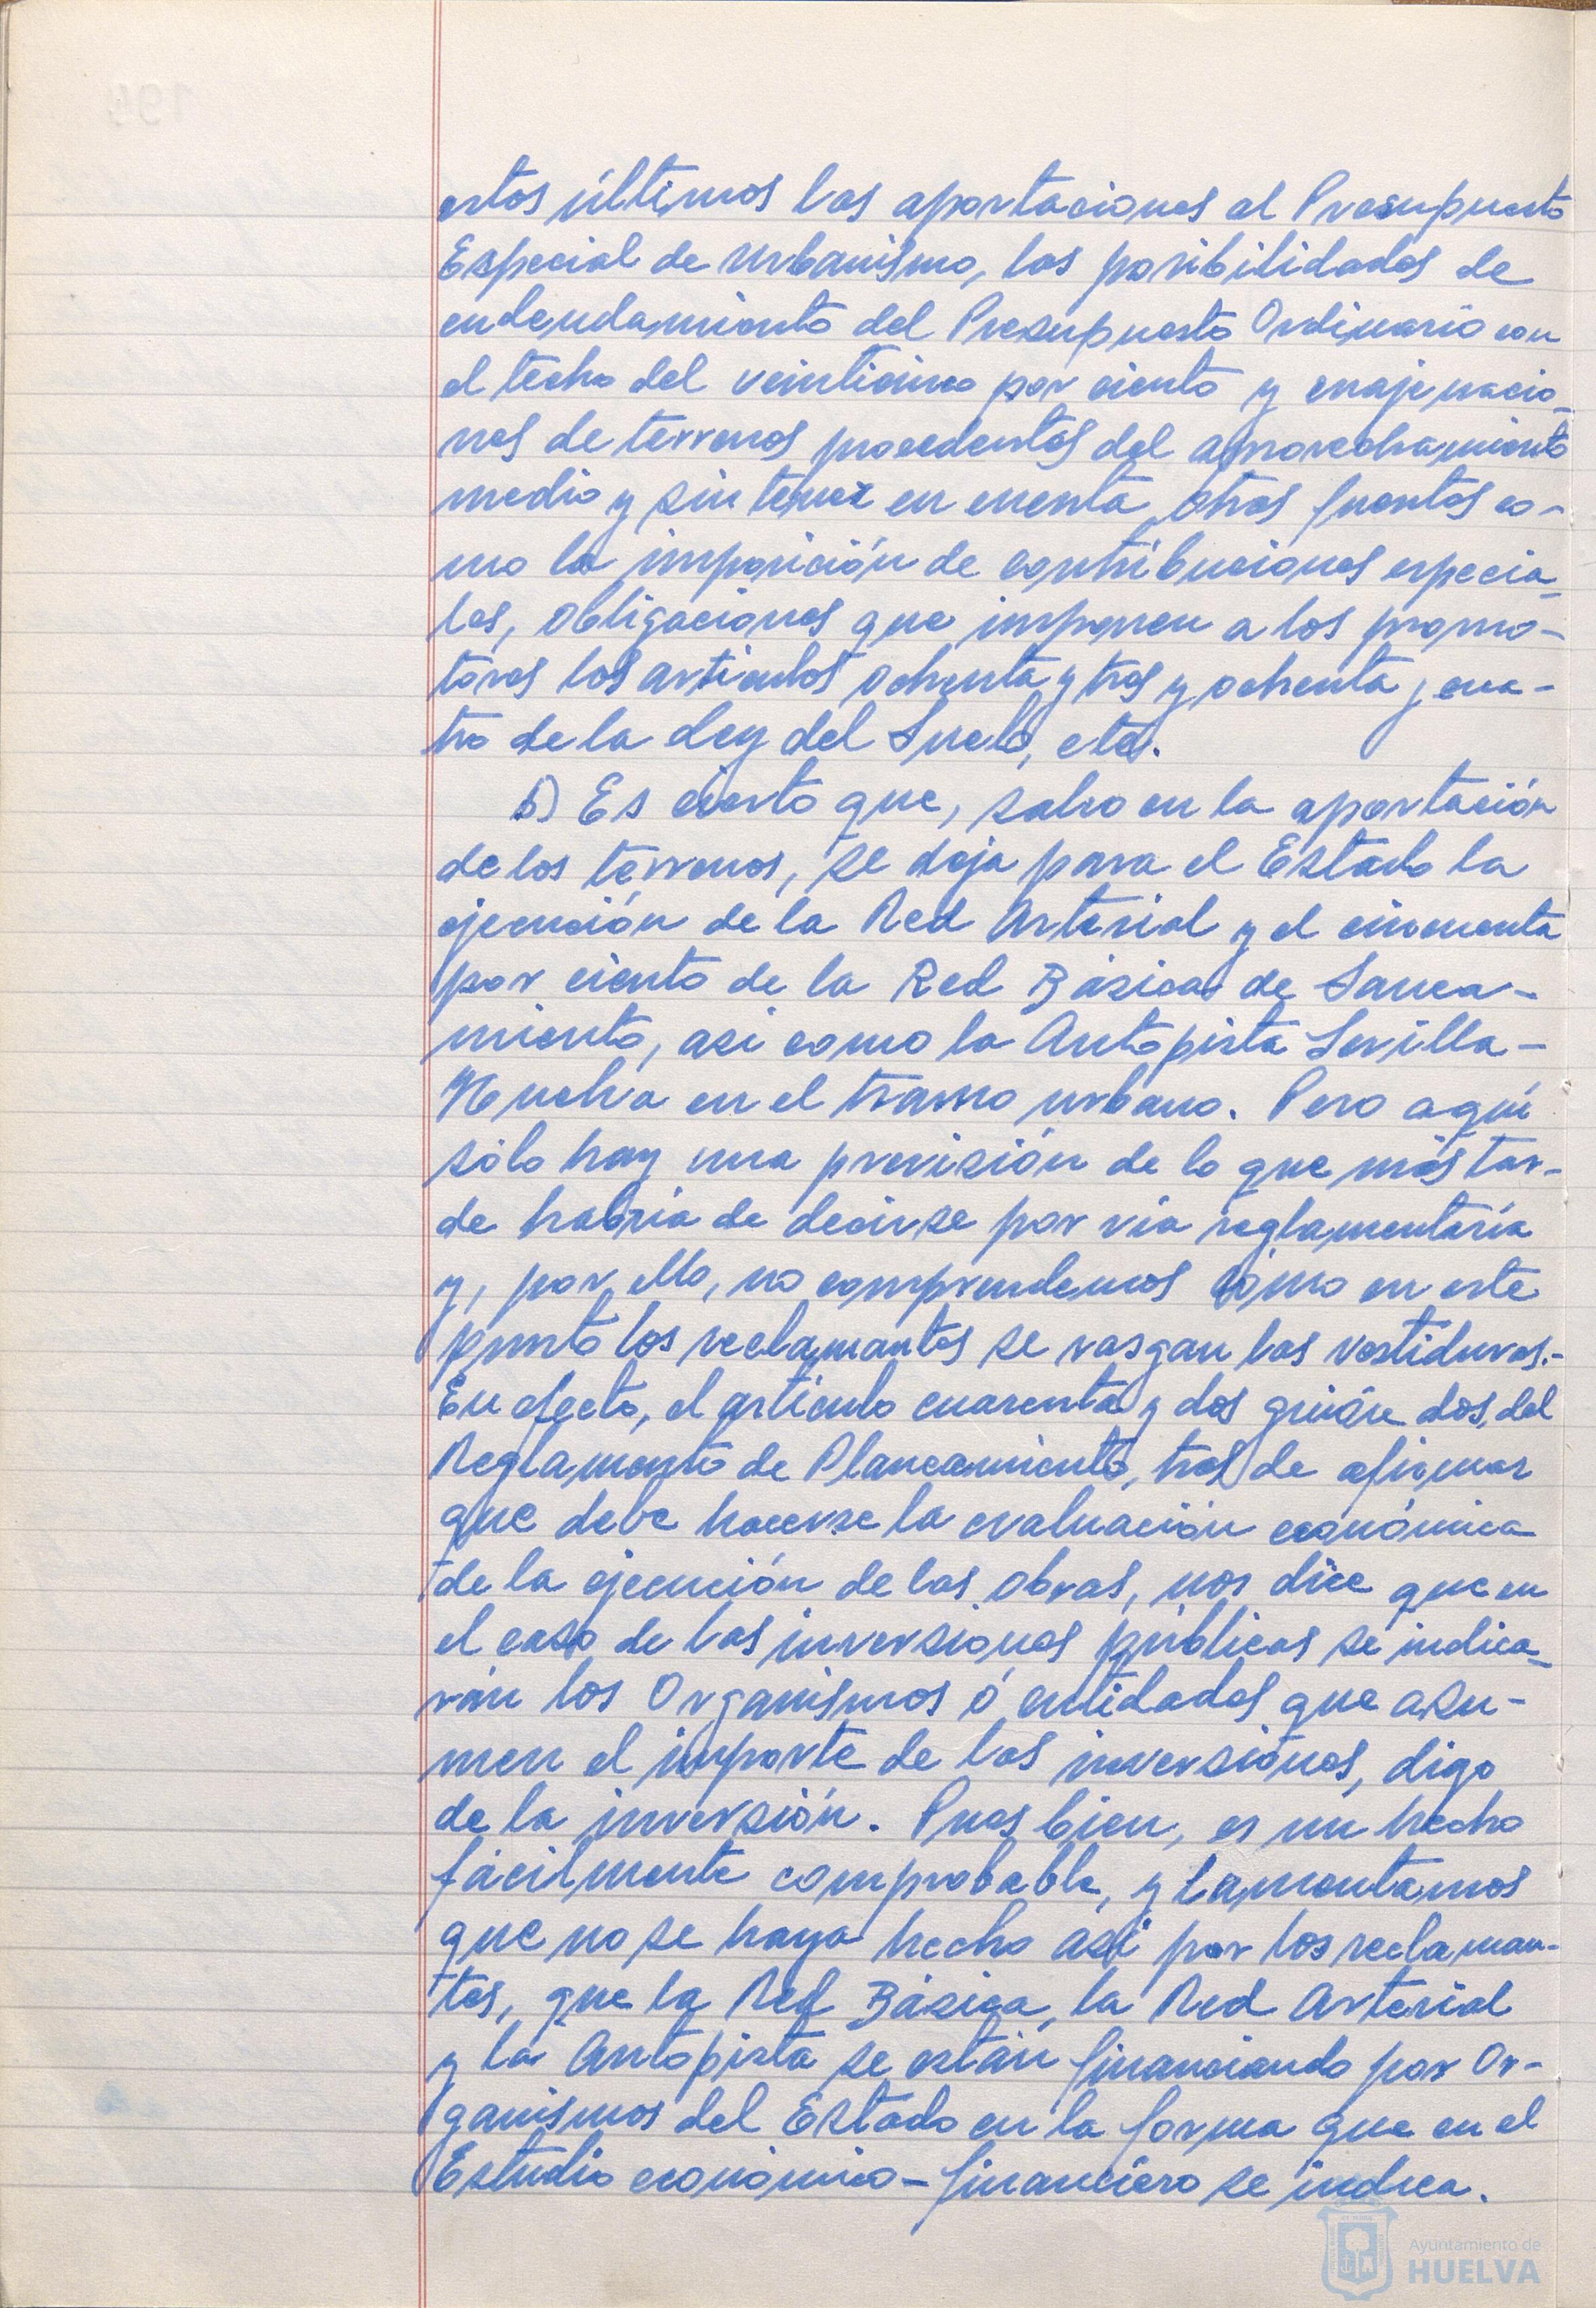 estos últimos las aportaciones al Presupuesto
Especial de Urbanismo, las posibilidades de
endeudamiento del Presupuesto Ordinario con
el techo del veinticinco por ciento y enajenacio-
nes de terrenos procedentes del aprovechamiento
medio y sin tener en cuenta otras fuentes co-
mo la imposición de contribuciones especia-
les, obligaciones que imponen a los promo-
tores los artículos ochenta y tres y ochenta y cua-
tro de la Ley del Suelo, etc.
b) Es cierto que, salvo en la aportación
de los terrenos, se deja para el Estado la
ejecución de la Red Arterial y el cincuenta
por ciento de la Red Básica de Sanea-
miento, asi como la Autopista Sevilla-
Huelva en el tramo urbano. Pero aquí
sólo hay una previsión de lo que más tar-
de habría de decirse por vía reglamentaria
y, por ello, no comprendemos cómo en este
punto los reclamantes se rasgan las vestiduras.-
En efecto, el artículo cuarenta y dos guión dos, del
Reglamento de Planeamiento, tras de afirmar
que debe hacerse la evaluación económica
de la ejecución de las obras, nos dice que en
el caso de las inversiones públicas se indica-
rán los Organismos ó entidades que asu-
men el importe de las inversiones, digo
de la inversión. Pues bien, es un hecho
fácilmente comprobable, y lamentamos
que no se haya hecho asi por los reclaman-
tes, que la Red Básica, la Red Arterial
y la Autopista se están financiando por Or-
ganismos del Estado en la forma que en el
Estudio económico-financiero se indica.
Ayuntamiento de
HUELVA